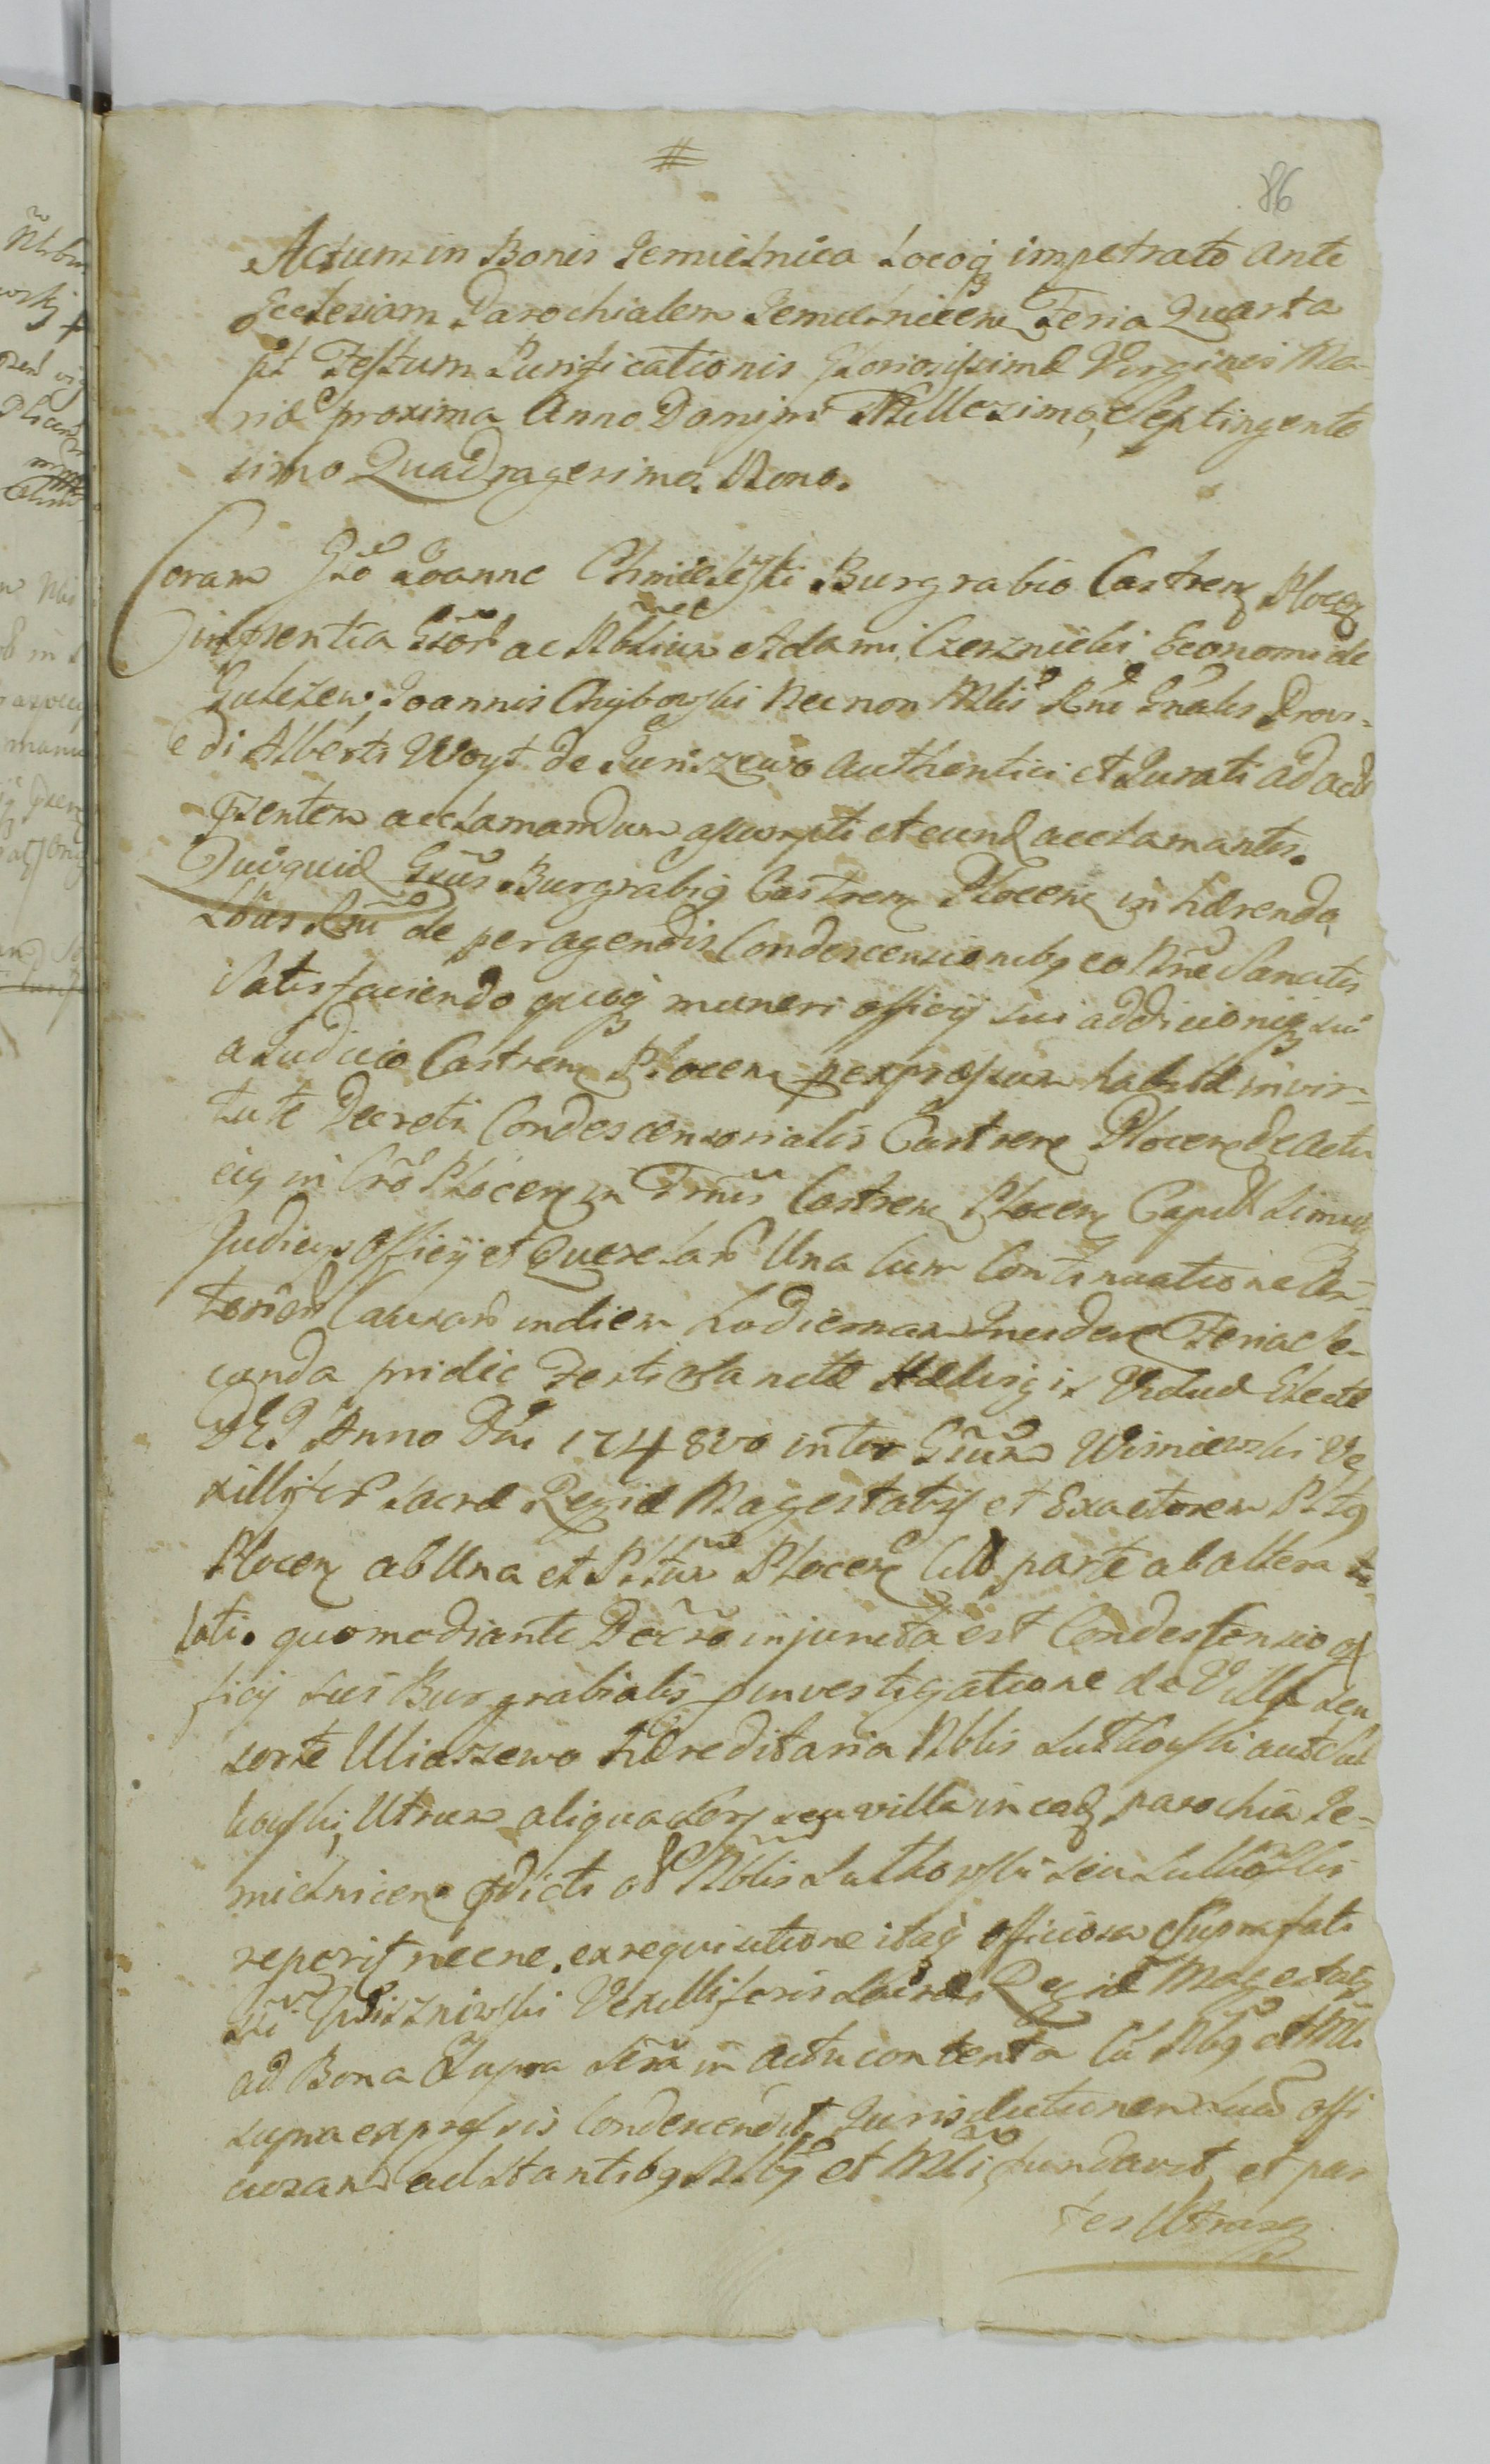 86
Actum in Bonis Jemielnica Locoq impetrato ante
Ecclesiam Parochialem Jemielnicen Feria Quarta
pt Festum Purificationis Gloriosissimæ Virginis Ma-
riæ proxima Anno Domini Millezimo, Septingente
simo Quadragesimo Nono.
Coram Gso Joanne Chmielefski Burgrabio Castren Plocen
in psentia Gsor ac Nblium Adami Czerznicki Economi de
Gulczew, Joannis Chybowski Nec non Mlis Rni Gnalis Provi-
di Alberti Woyt de Juriszewo Authentici et Jurati ad actū
psentem acclamandum assumpti et eund acclamantis.
Quoquid Gsus Burgrabiq Castren Plocen inhærendo
Lbus Rni de peragendis Condescensionibq eo Nne Sancitis
Satisfaciendo quoq muneri officij sui addicioniq sui
a Judicio Castren Plocen p expressum habitæ in vir-
tute Decreti Condescensorialis Castren Plocen de actu
eiq in Cro Plocen in Trnis Castren Plocen Capitl Simulq
Judicijs Officij et Querelar Una cum Continuatione Cer-
torier Causar in diem hodiernam Inciden Feria Se-
cunda pridie Festi Sanctæ Hedvigis Viduæ Electæ
DEI Anno Dni 1748vo inter Gsum Wisniewski Ve
xillifer Sacræ Regiæ Magestatis et Exactorem Pltq
Plocen ab Una et Pltum Plocen parte ab altera
lati. quo mediante Decro injuncta est Condescensio of
ficij sui Burgrabialis p investigatione de Villa seu
sorte Uliaszewo Hæreditaria Nblis Lutkowski aut Sul
kowski, Utrum aliqua Sors seu villa in ead parochia Je-
mielnicen pdicti Nblis Lutkowski seu Sulkowski
reperit necne. ex requisitione itaq officiosa Supra fati
Gsi Wiszniwski Vexilliferis Sacræ Regiæ Magestatis
ad Bona Supra Scra in actu contenta Cū Nbq et Mli
supra expressis Condescendit, Jurisdictionem suā offi
ciosam adstantibq Nbq et Mli, fundavit, et par
tes Utrasq